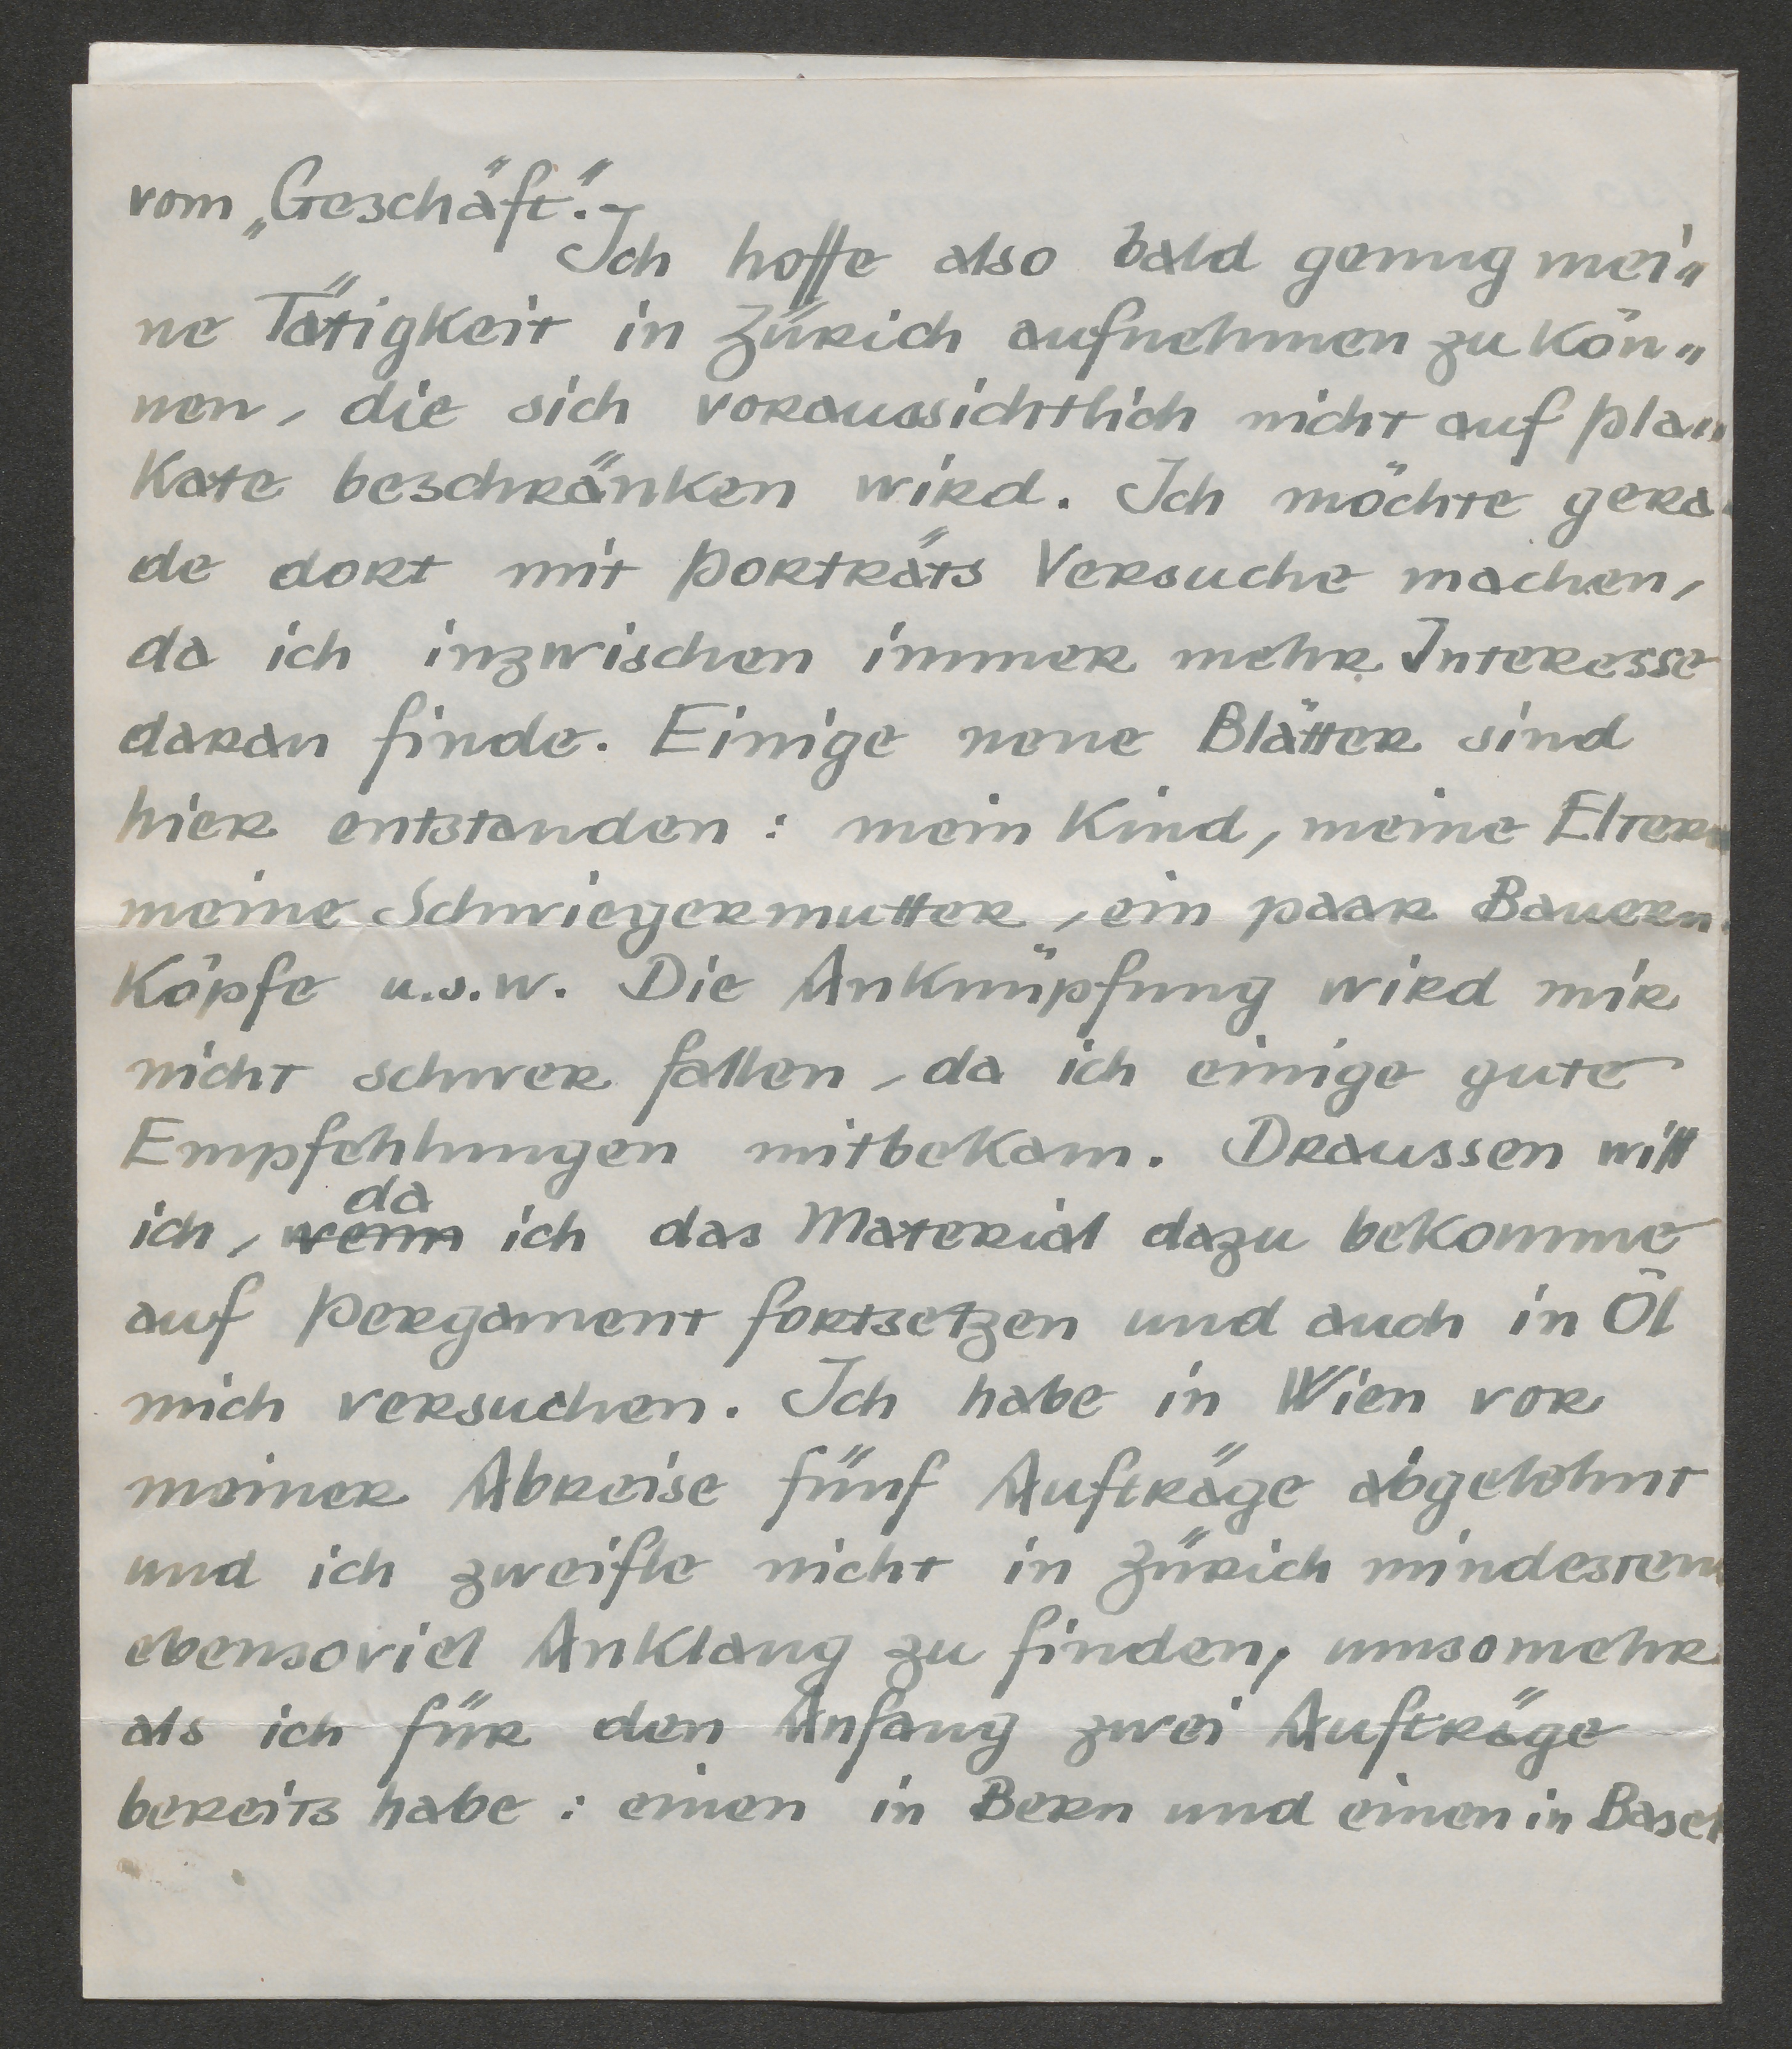 vom „Geschäft“.-
Ich hoffe also bald genug mei„
ne Tätigkeit in Zürich aufnehmen zu kön„
nen, die sich voraussichtlich nicht auf Pla„
kate beschränken wird. Ich möchte gera„
de dort mit Porträts Versuche machen,
da ich inzwischen immer mehr Interesse
daran finde. Einige neue Blätter sind
hier entstanden: mein Kind, meine Eltern
meine Schwiegermutter, ein paar Bauern„
Köpfe u.s.w. Die Anknüpfung wird mir
nicht schwer fallen, da ich einige gute
Empfehlungen mitbekam. Draussen will
da
ich, wenn ich das Material dazu bekomme
auf Pergament fortsetzen und auch in Öl
mich versuchen. Ich habe in Wien vor
meiner Abreise fünf Aufträge abgelehnt
und ich zweifle nicht in Zürich mindestens
ebensoviel Anklang zu finden, umsomehr
als ich für den Anfang zwei Aufträge
bereits habe: einen in Bern und einen in Basel